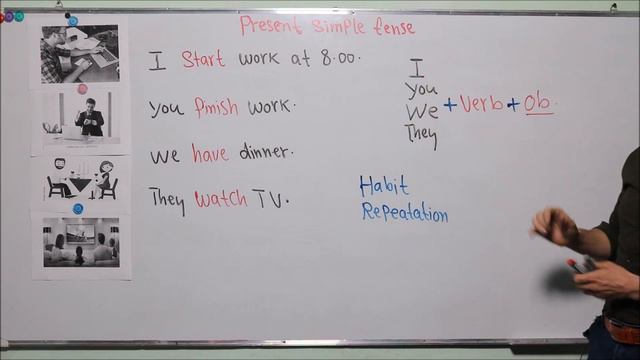 Present simple tense
I Start work at 8.00.
you finish work.
we have dinner.
They watch TV.
I
you
We + Verb + Ob.
They
Habit
Repeatation